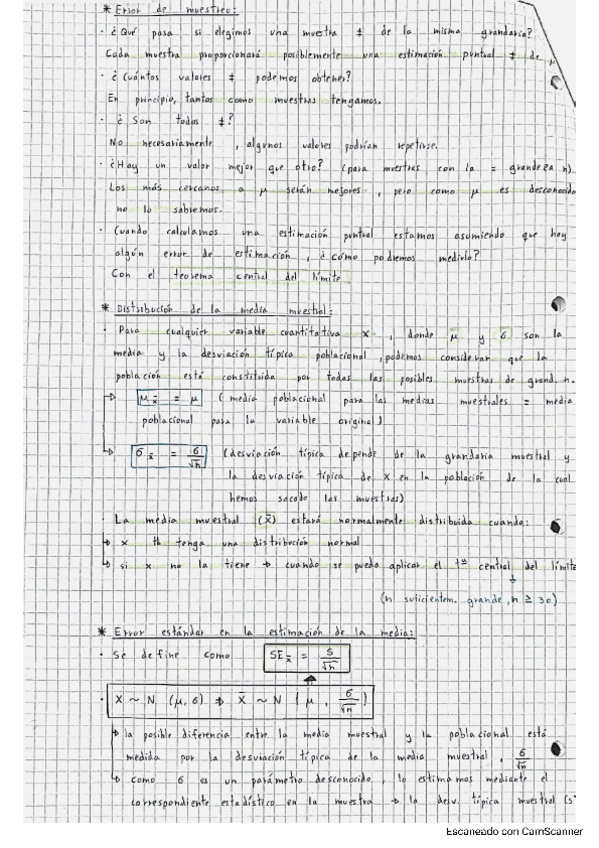 * Error de muestreo:
· ¿Qué pasa si elegimos una muestra ≠ de la misma grandaria?
Cada muestra proporcionará posiblemente una estimación puntual ≠ de μ
· ¿Cuántos valores ≠ podemos obtener?
En principio, tantos como muestras tengamos.
· ¿Son todos ≠?
No necesariamente, algunos valores podrían repetirse.
· ¿Hay un valor mejor que otro? (para muestras con la = grandeza n).
Los más cercanos a μ serán mejores, pero como μ es desconocido
no lo sabremos.
· Cuando calculamos una estimación puntual estamos asumiendo que hay
algún error de estimación, ¿cómo podremos medirlo?
Con el teorema central del límite
* Distribución de la media muestral:
· Para cualquier variable cuantitativa X, donde μ y σ son la
media y la desviación típica poblacional, podemos considerar que la
población está constituida por todas las posibles muestras de grand. n.
↳ μ_x̄ = μ (media poblacional para las medias muestrales = media
poblacional para la variable original)
↳ σ_x̄ = σ/√n (desviación típica depende de la grandaria muestral y
la desviación típica de X en la población de la cual
hemos sacado las muestras)
· La media muestral (x̄) estará normalmente distribuida cuando:
↳ x tb tenga una distribución normal
↳ si x no la tiene → cuando se pueda aplicar el tma central del límite
(n suficientem. grande, n ≥ 30)
* Error estándar en la estimación de la media:
· Se define como SE_x̄ = s/√n
· X ~ N (μ, σ) ⇒ X̄ ~ N (μ, σ/√n)
↳ la posible diferencia entre la media muestral y la poblacional está
medida por la desviación típica de la media muestral, σ/√n
↳ como σ es un parámetro desconocido, lo estimamos mediante el
correspondiente estadístico en la muestra → la desv. típica muestral (s
Escaneado con CamScanner